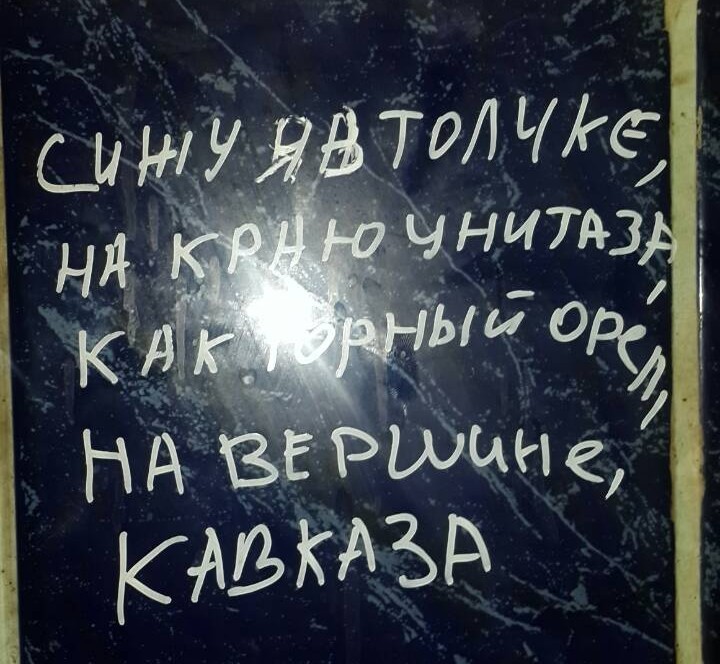 СИЖУ Я В ТОЛЧКЕ,
НА КРАЮ УНИТАЗА,
КАК ГОРНЫЙ ОРЕЛ,
НА ВЕРШИНЕ,
КАВКАЗА